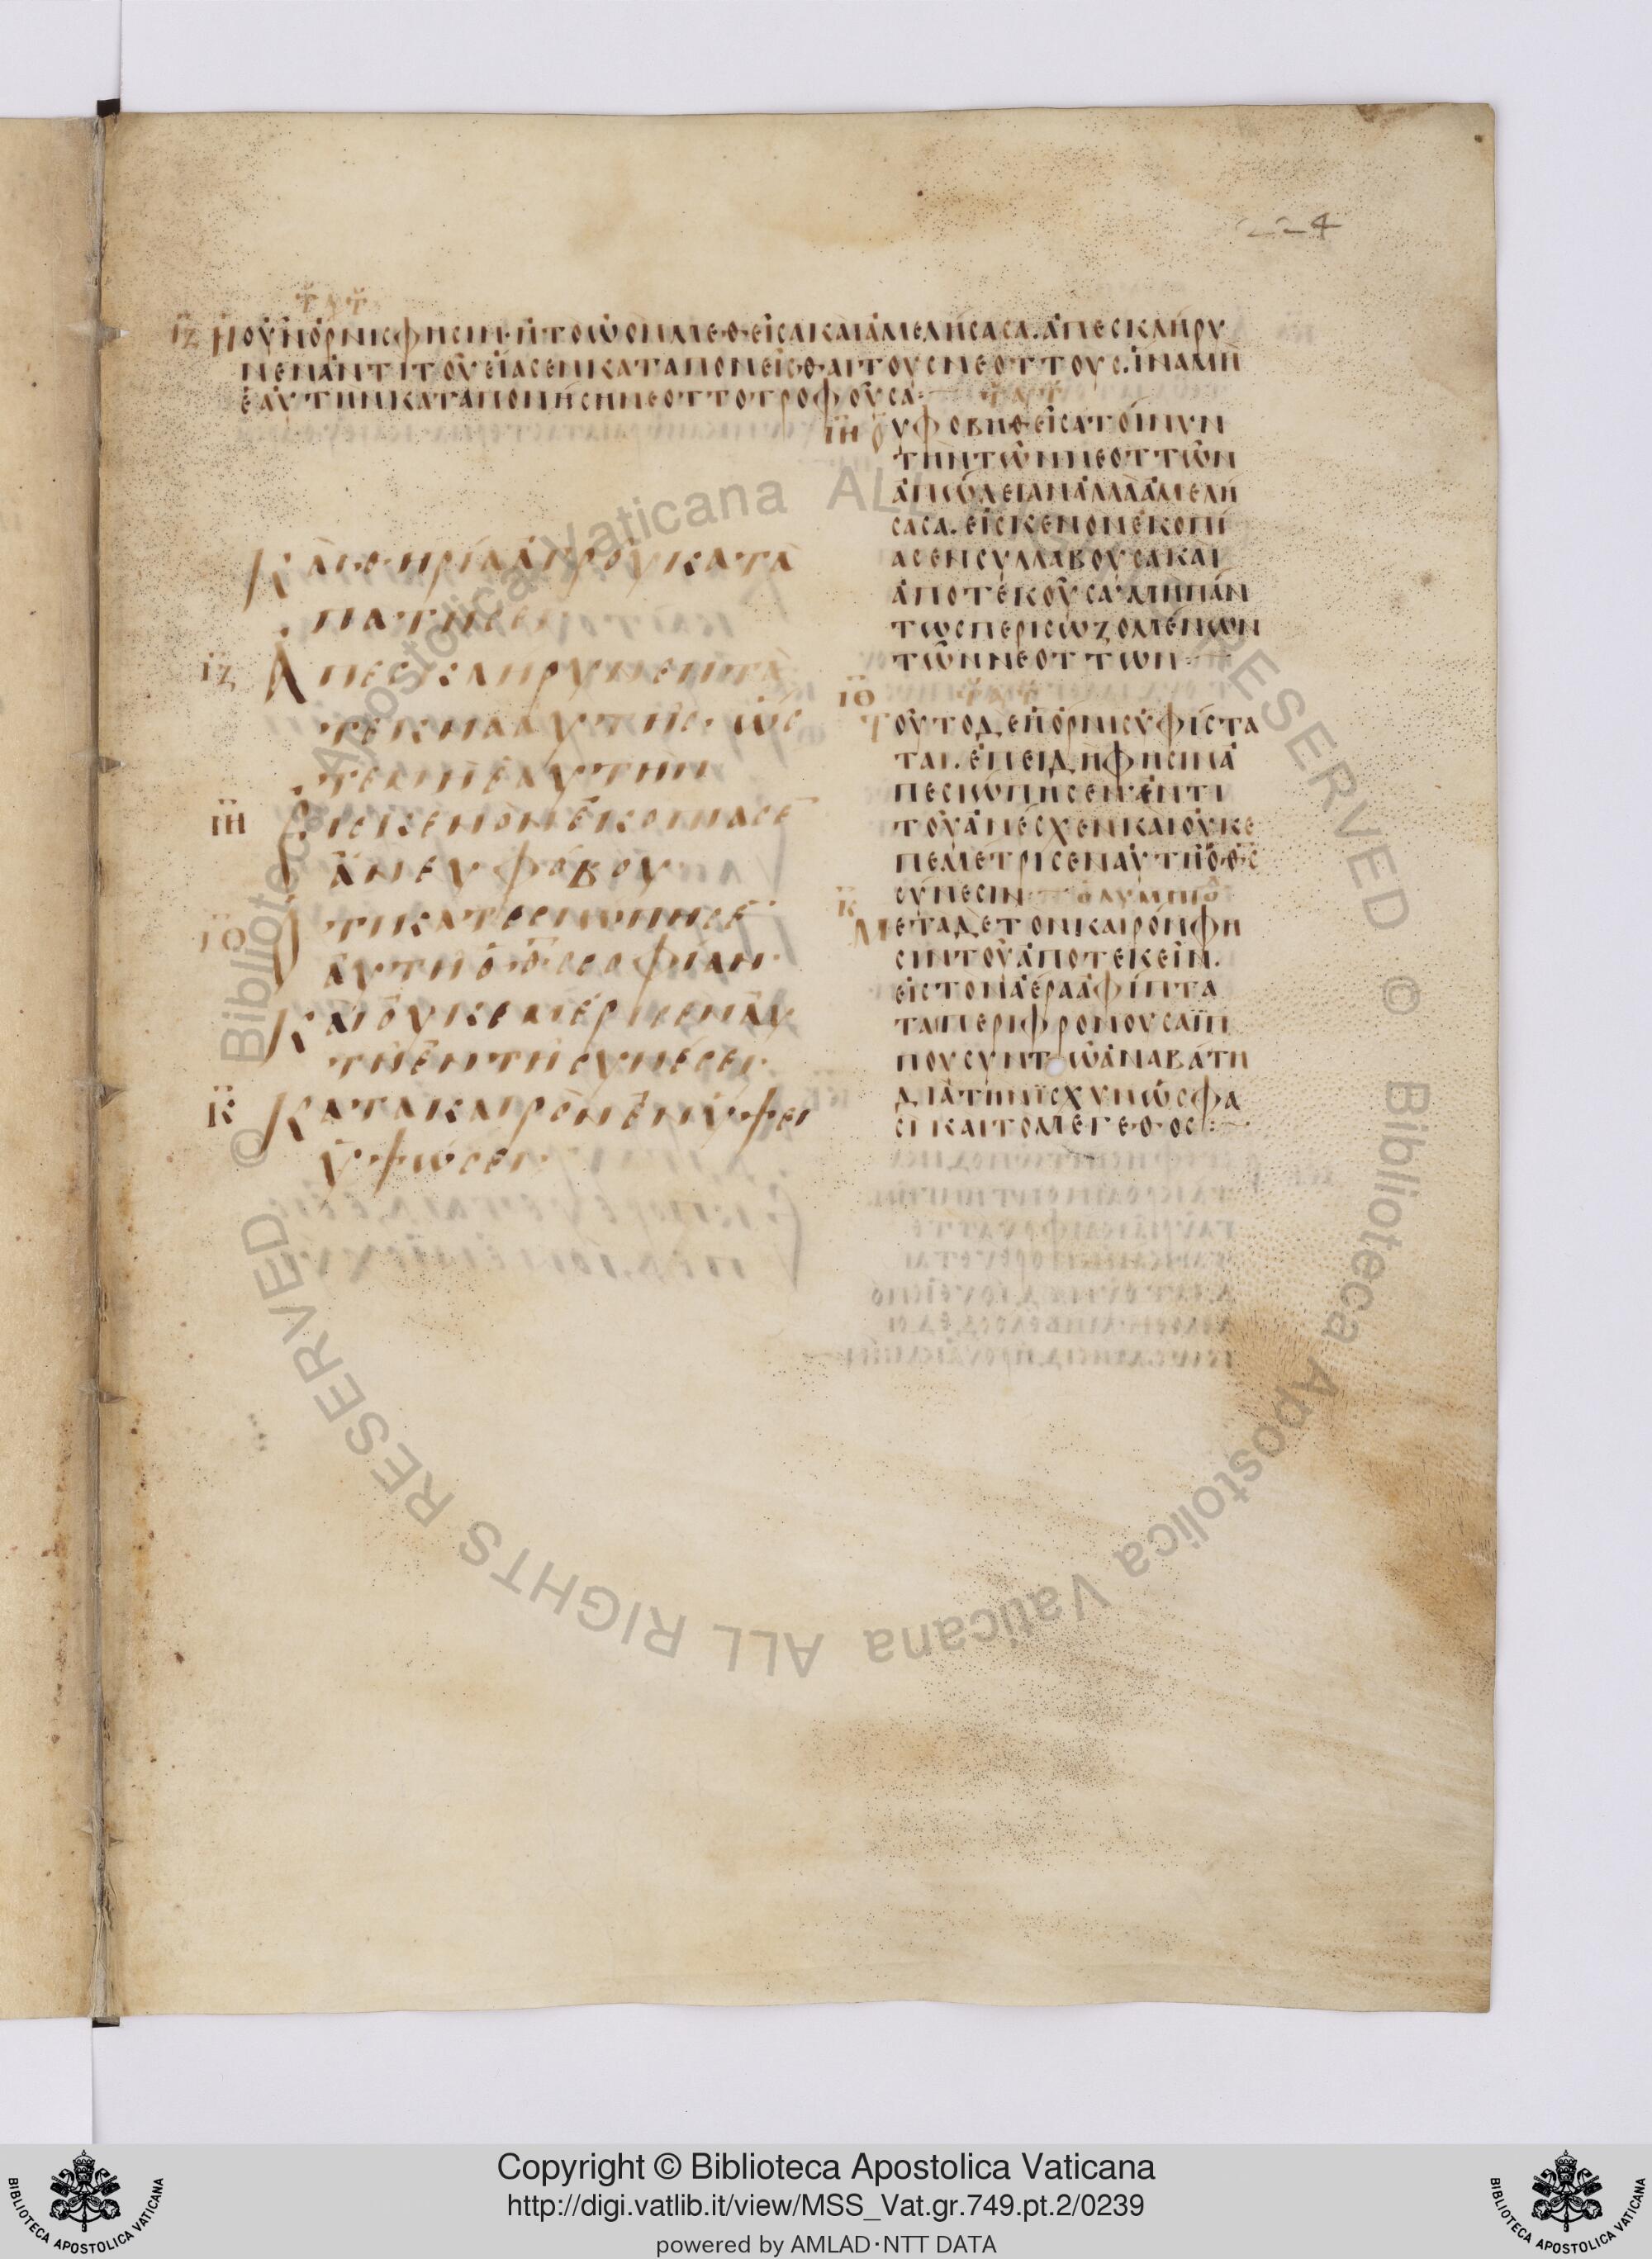 224
ιζ Ἡ οὖν ὄρνις φησὶν ἢ τὸ ὠὸν μεθεῖσα καὶ ἀμελήσασα. ἀπεσκλήρυ
νεν ἀντὶ τοῦ εἴασεν καταπονεῖσθαι τοὺς νεοττούς. ἵνα μὴ
ἑαυτὴν καταπονήσῃ νεοττοτροφοῦσα:
ιη Οὐ φοβηθεῖσα τὸν πυν
τὴν τῶν νεοττῶν
ἀπώλειαν ἀλλ' ἀμελή
σασα. εἰς κενὸν ἐκοπί
ασεν συλλαβοῦσα καὶ
ἀποτεκοῦσα· μὴ πάν
τως περισωζομένων
τῶν νεοττων:
ιθ Τοῦτο δὲ ἡ ὄρνις ὑφίστα
ται. ἐπειδή φησιν ἀ
πεσιώπησεν ἀντὶ
τοῦ ἀπέσχεν καὶ οὐκ ἐ
πεμέτρισεν αὐτῇ ὁ θς
σύνεσιν: ὀλυμπιο
κ Μετα δὲ τὸν καιρόν φη
σιν τοῦ ἀποτεκεῖν.
εἰς τὸν ἀέρα ἀφίπτα
ται περιφρονοῦσα ἵπ
που σὺν τῶ ἀναβάτη
διὰ τὴν ἰσχὺν ὥς φα
σι καὶ τὸ μέγεθος:
Καὶ θηρία ἀγροῦ κατα
πατήσει
ιζ Ἀπεσκλήρυνεν τὰ
τέκνα αὐτῆς· ὥς
τε μὴ ἑαυτὴν
ιη Εἰς κενὸν ἐκοπίασε
ἄνευ φόβου
ιθ Ὅτι κατεσιώπησε
αὐτῇ ὁ θς σοφίαν·
Καὶ οὐκ ἐμέρισεν αὐ
τῇ ἐν τῇ συνέσει·
κ Κατὰ καιρὸν ἐν ὕψει
ὑψώσει·
Copyright © Biblioteca Apostolica Vaticana
http://digi.vatlib.it/view/MSS_Vat.gr.749.pt.2/0239
powered by AMLAD·NTT DATA
© Biblioteca Apostolica Vaticana ALL RIGHTS RESERVED © Biblioteca Apostolica Vaticana ALL RIGHTS RESERVED
BIBLIOTECA APOSTOLICA VATICANA
BIBLIOTECA APOSTOLICA VATICANA